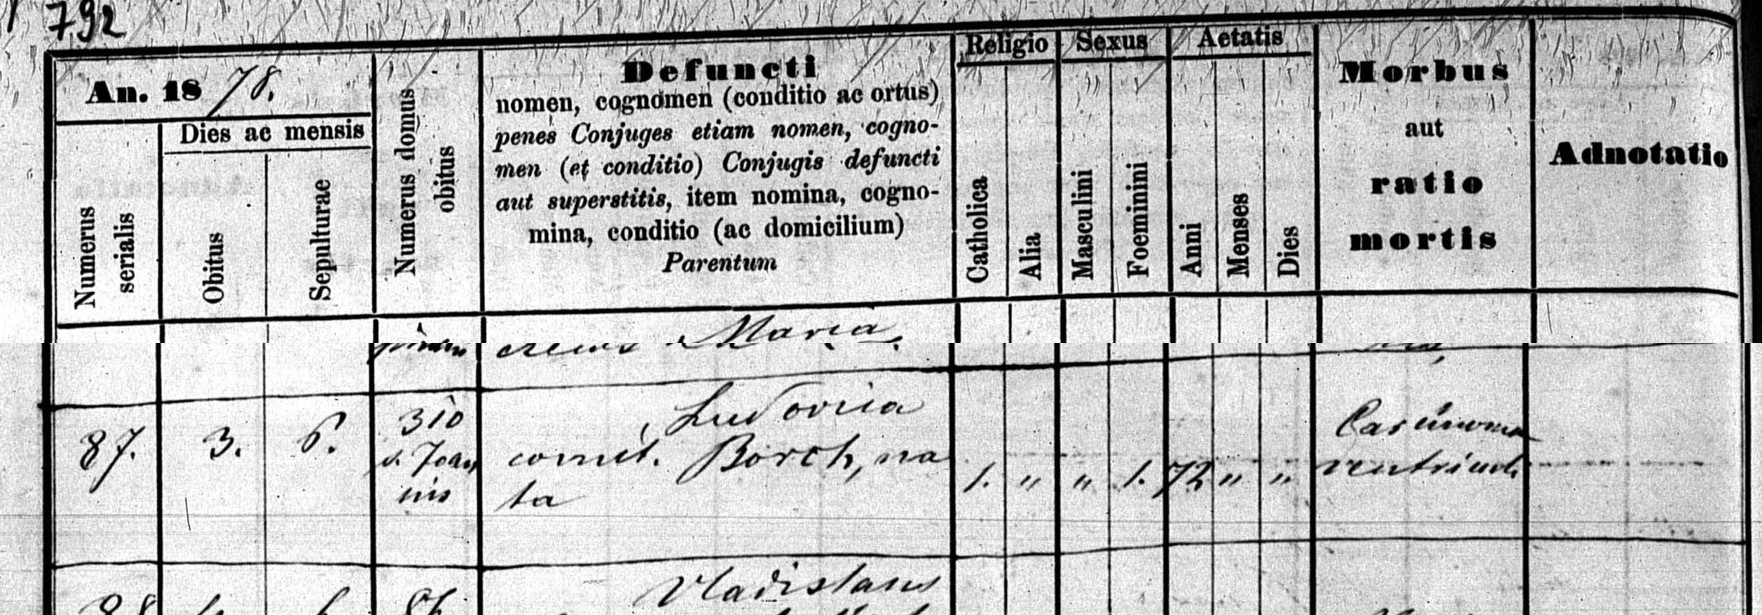 792
An. 1878.
Dies ac mensis
Numerus serialis
Obitus
Sepulturae
Numerus domus obitus
Defuncti
nomen, cognomen (conditio ac ortus)
penes Conjuges etiam nomen, cogno-
men (et conditio) Conjugis defuncti
aut superstitis, item nomina, cogno-
mina, conditio (ac domicilium)
Parentum
Religio
Catholica
Alia
Sexus
Masculini
Foeminini
Aetatis
Anni
Menses
Dies
Morbus
aut
ratio
mortis
Adnotatio
Maria
87. 3. 6. 310 Ludovica
s. Joan comit. Borch, na
nis ta
1. " " 1. 72 " "
Carcinoma
ventriculi
Vladislaus